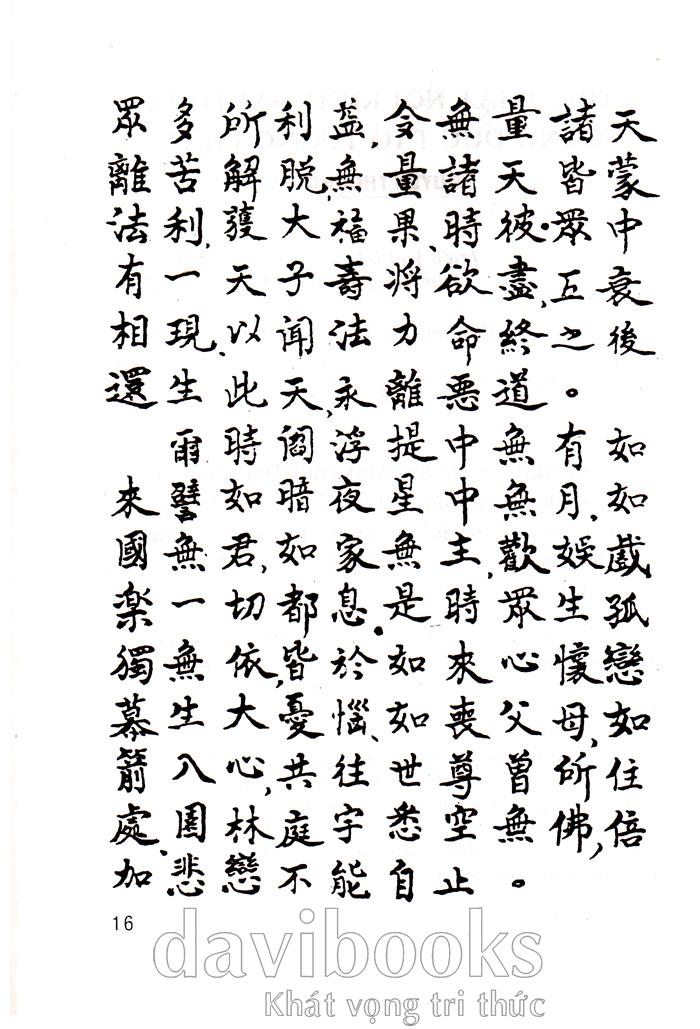 天蒙中衰後 如如戲,孤戀如住倍
諸皆眾五之。有月,娛生懷母,所佛,
量天彼盡,終道無無歡眾心父曾無。
無諸時欲命惡中中主,時來喪尊空止
令量果,将力離提星無是如如世悉自
益,無福壽法永浮夜家息。於惱,往字能
利脫,大子闻天,阎暗如都,皆憂共庭不
所解護天以此時如君,切依大心,林戀
多苦利,一現生爾譬無一無生入園悲
眾離法有相還 來國楽獨慕箭處,加
16
davibooks
Khát vọng tri thức